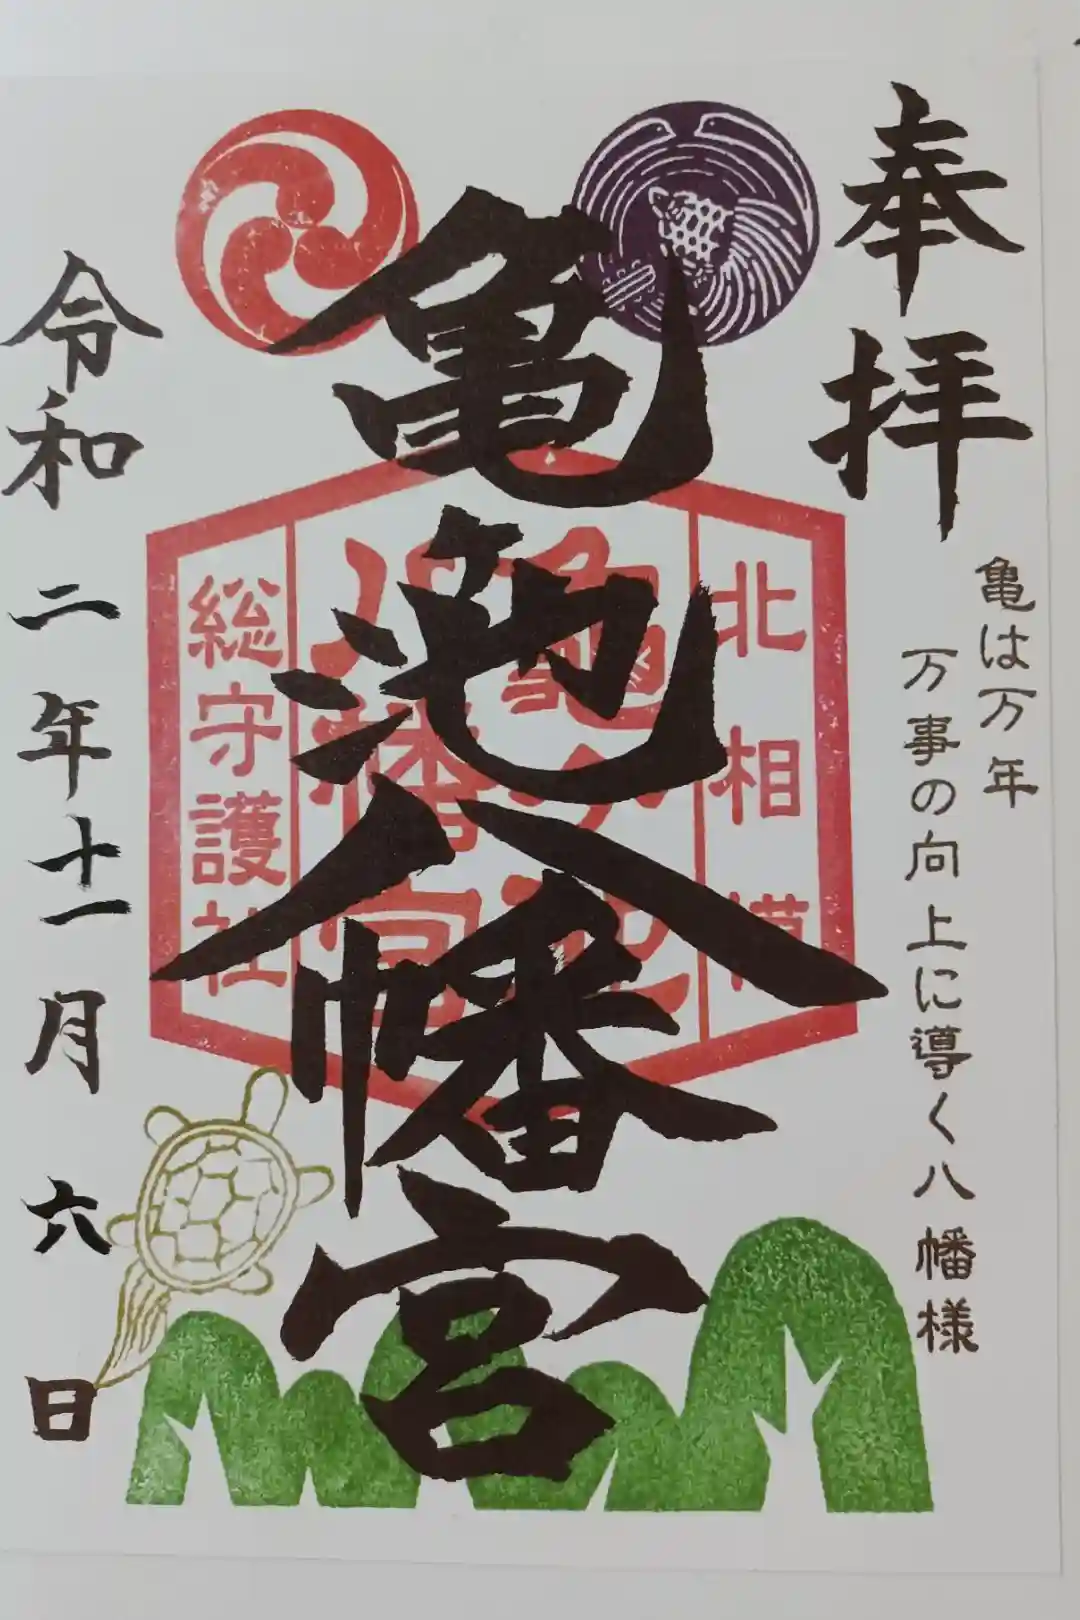 奉拝
亀は万年
万事の向上に導く八幡様
亀池八幡宮
北相模
総守護社
八幡宮
令和二年十一月六日